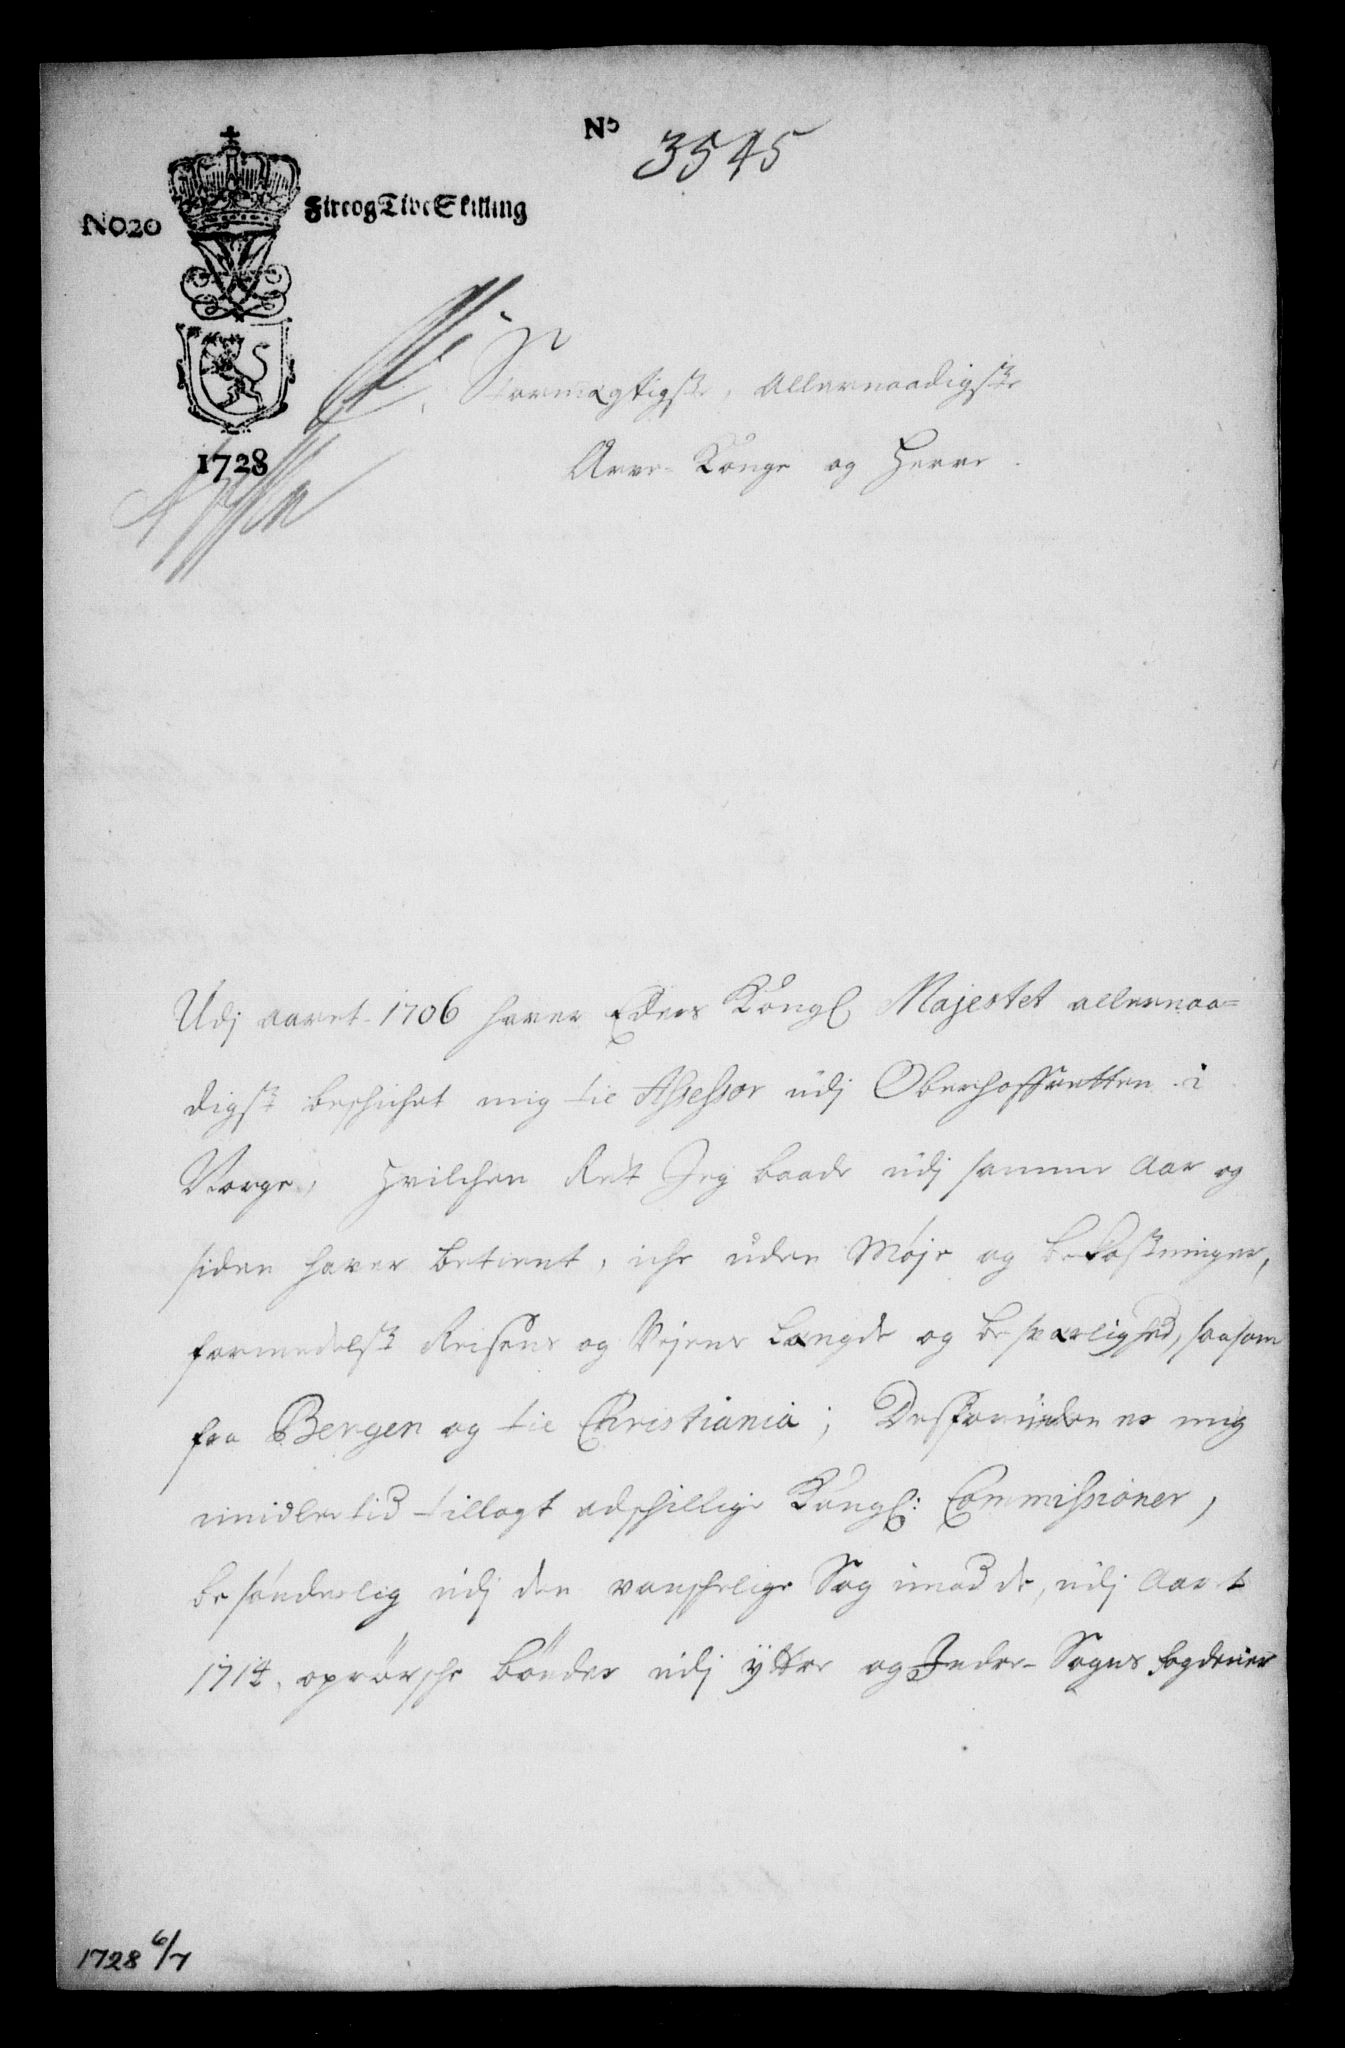 No 3545
No 20 Fire og Tive Skilling
1728
Stormægtigste, Allernaadigste
Arve-Konge og Herre.
Udj aaret 1706 haver Eders Kongl Majestet allernaa=
digst beschichet mig til Assessor udj Oberhoffretten i
Norge, Hvilchen Ret Jeg baade udj samme Aar og
siden haver betient, iche uden Møje og Bekostninger,
formedelst Reisens og Vejens Længde og besværlighed, saasom
fra Bergen og til Christiania; Desforuden er mig
imidlertid tillagt adschillige Kongl: Commissioner,
besønderlig udj den vanschelige Sag imod de, udj Aaret
1714, oprørsche bønder udj ÿttre og Indre-Sogns fogderier
1728 6/7